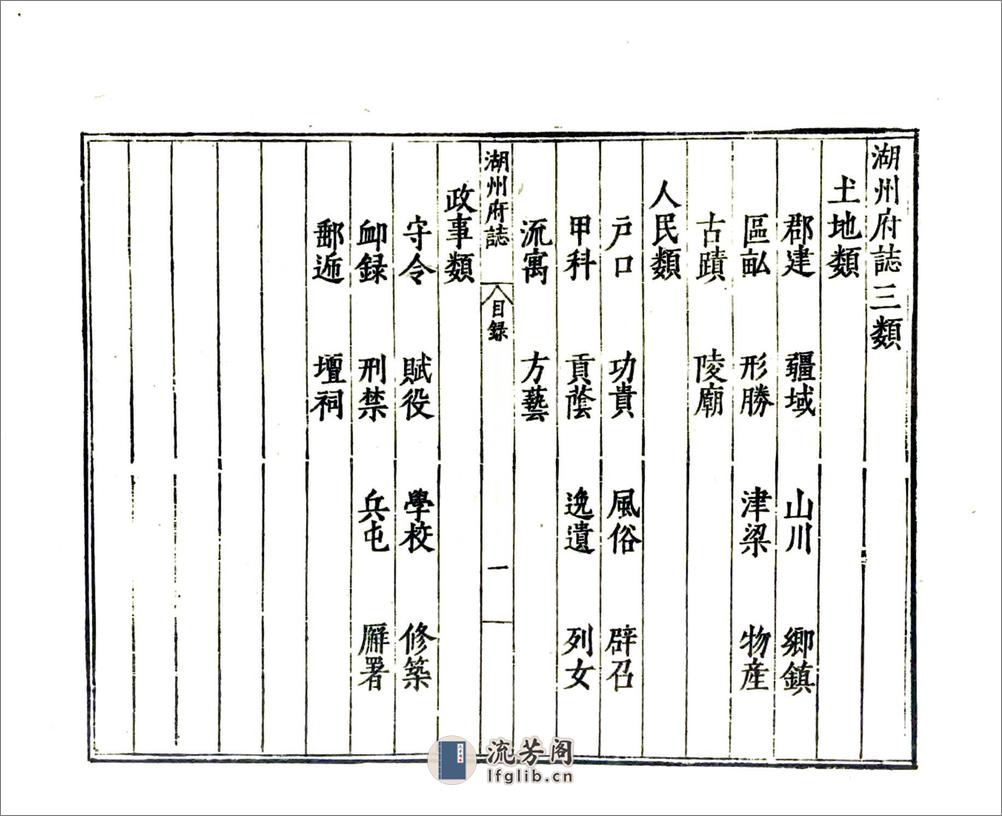 湖州府誌三類
土地類
郡建 疆域 山川 鄉鎮
區畆 形勝 津梁 物產
古蹟 陵廟
人民類
戶口 功貴 風俗 辟召
甲科 貢蔭 逸遺 列女
流寓 方藝
湖州府誌 目録 一
政事類
守令 賦役 學校 修築
卹録 刑禁 兵屯 廨署
郵逓 壇祠
流芳阁
lfglib.cn